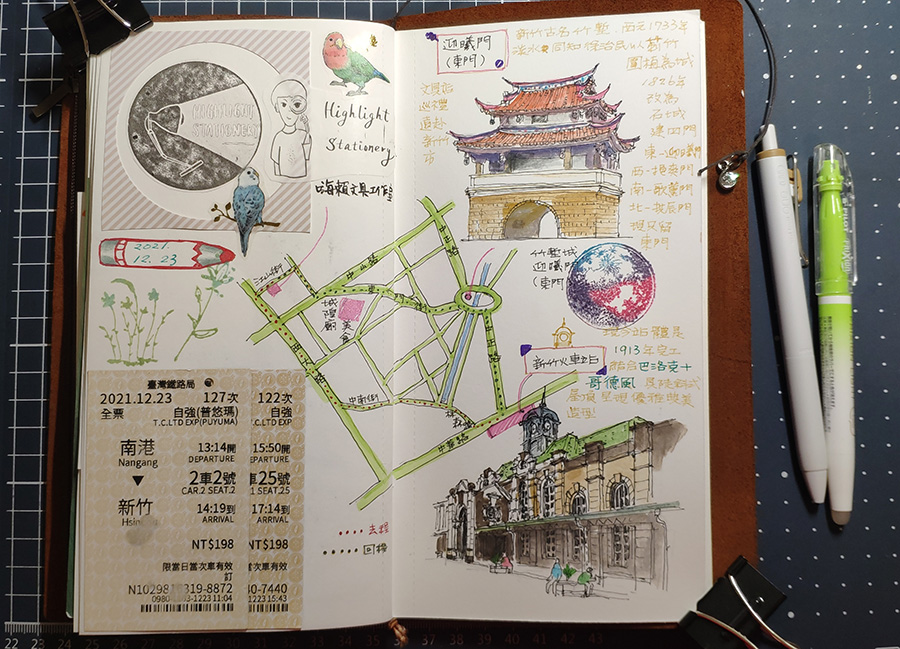 HIGHLIGHT
STATIONERY
Highlight
Stationery
嗨賴文具工作室
2021.
12.23
江山街
中山路
東門街
城隍廟
美食
中南街
林森路
中華路
去程
回程
臺灣鐵路局
2021.12.23
127次
全票
自強(普悠瑪)
T.C.LTD EXP(PUYUMA)
南港
Nangang
13:14開
DEPARTURE
▼
2車2號
CAR.2 SEAT.2
新竹
14:19到
ARRIVAL
NT$198
限當日當次車有效
訂
122次
自強
T.C.LTD EXP
15:50開
EPARTURE
車25號
SEAT.25
17:14到
ARRIVAL
NT$198
次車有效
40-7440
1223 15:43
迎曦門
(東門)
新竹古名竹塹 西元1733年
淡水同知徐治民以莿竹
圍植為城
1826年
改為
石城
建四門
東-迎曦門
西-挹爽門
南-歌薰門
北-拱辰門
現只留
東門
文具站
巡禮
還赴
新竹
竹塹城
迎曦門
(東門
新竹火車站
1913年完工
結合巴洛克+
哥德風
屋頂呈現優雅
造現
PILOT
22 23 24 25 26 27 28 29 30 31 32 33 34 35 36 37 38 39 40 41 42 43